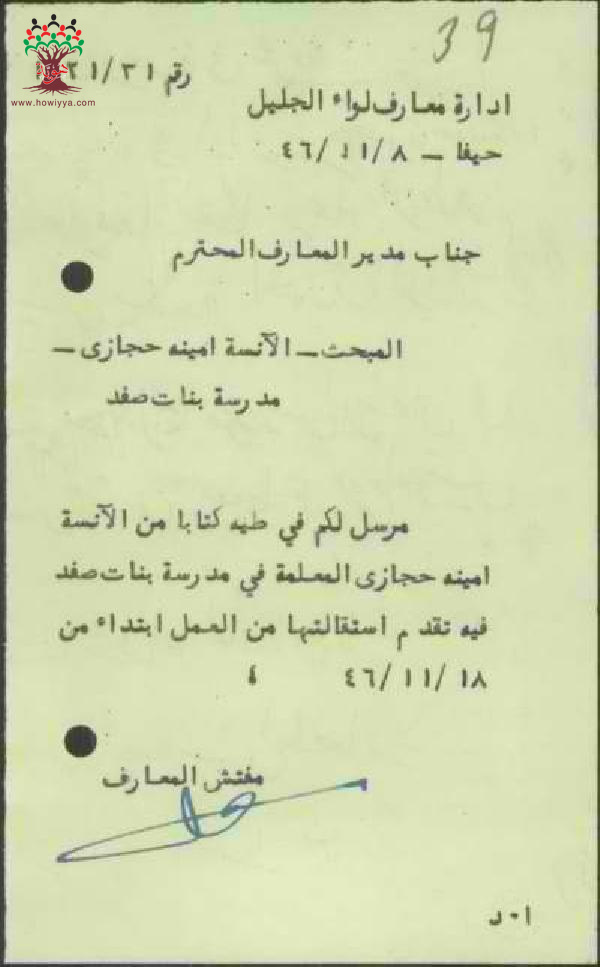 39
رقم ٢١/٣١
www.howiyya.com
ادارة معارف لواء الجليل
حيفا – ٤٦/١١/٨
جناب مدير المعارف المحترم
المبحث – الآنسة امينه حجازى –
مدرسة بنات صفد
مرسل لكم في طيه كتابا من الآنسة
امينه حجازى المعلمة في مدرسة بنات صفد
فيه تقدم استقالتها من العمل ابتداء من
٤٦/١١/١٨ ؛
مفتش المعارف
ا٠د